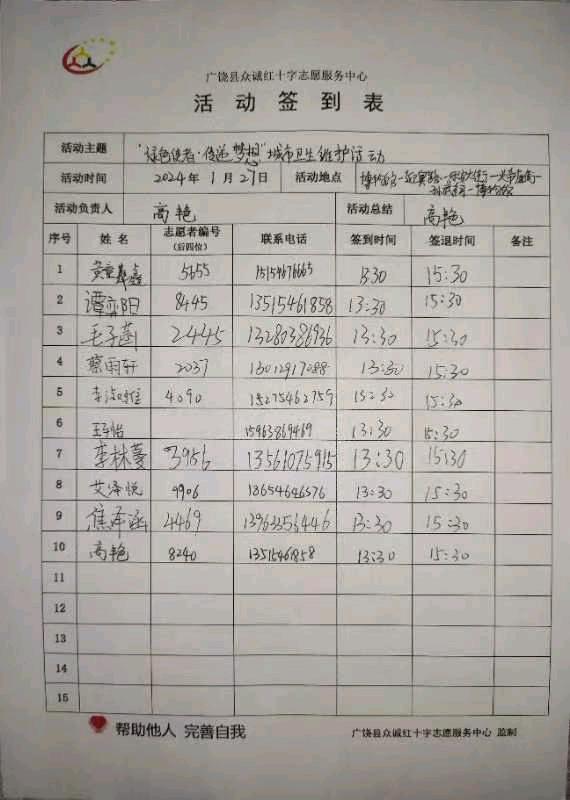 广饶县众诚红十字志愿服务中心
活动签到表
活动主题 "绿色使者·传递梦想"城市卫生维护活动
活动时间 2024年1月27日 活动地点 博物馆
孙武祠一博物馆
活动负责人 高艳 活动总结 高艳
序号 姓名 志愿者编号 联系电话 签到时间 签退时间 备注
(后四位)
1 5655 15154676665 1330 15:30
2 谭弈阳 8445 13515461858 13:30 15:30
3 毛子菡 2445 13280386936 13:30 15:30
4 蔡雨轩 2037 13012917088 13:30 15:30
5 4090 15275462759 15:30
6 王子怡 15963869469 13:30 15:30
7 李林蔓 3956 13561075915 13:30 15:30
8 艾泽悦 9906 13654646576 13:30 15:30
9 焦泽涵 4469 13963356446 13:30 15:30
10 高艳 8240 13515461858 13:30 15:30
11
12
13
14
15
帮助他人 完善自我
广饶县众诚红十字志愿服务中心 监制